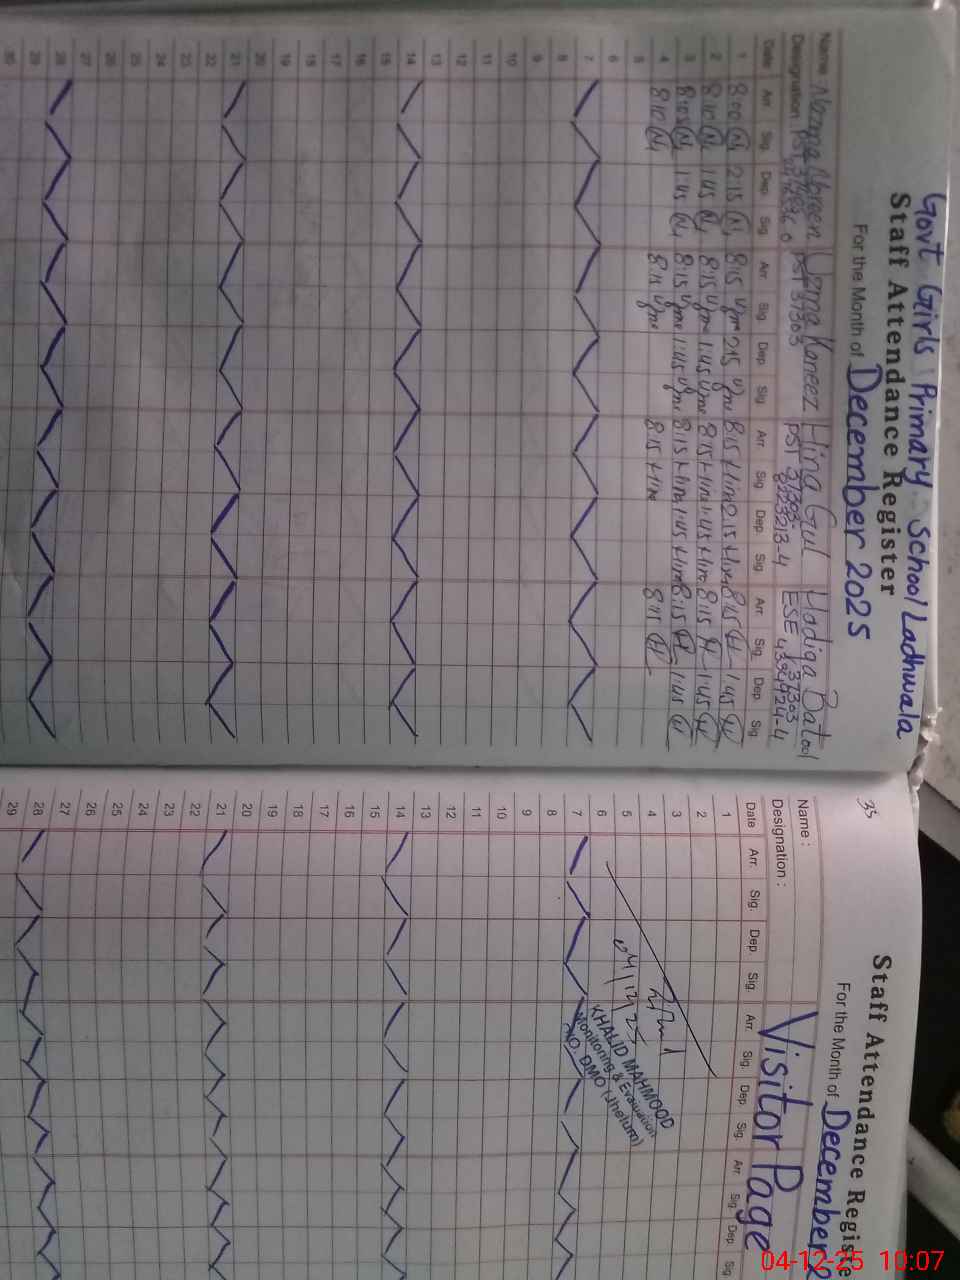 Govt Girls Primary School Ladhwala
Staff Attendance Register
For the Month of December 2025
Name: Nazma Noreen Uzma Kaneez Hina Gul Hadiqa Batool
Designation PST 37303 PST 37303 PST 37303 ESE 37303
Date Arr. Sig. Dep. Sig. Arr. Sig. Dep. Sig. Arr. Sig. Dep. Sig. Arr. Sig. Dep. Sig.
1 8:00 2:15 8:15 2:15 8:15 Hina 2:15 Hina 8:15 H 1:45 H
2 8:10 1:45 8:15 1:45 8:15 Hina 1:45 Hina 8:15 H 1:45 H
3 8:05 1:45 8:15 1:45 8:15 Hina 1:45 Hina 8:15 H 1:45 H
4 8:10 8:15 8:15 Hina 8:15 H
5
6
7
8
9
10
11
12
13
14
15
16
17
18
19
20
21
22
23
24
25
26
27
28
29
30
33
Staff Attendance Registe
For the Month of December 2
Visitor Page
Name :
Designation :
Date Arr. Sig. Dep. Sig. Arr. Sig. Dep. Sig. Arr. Sig. Dep. Sig.
1
2
3
4
5
6
7
8
9
10
11
12
13
14
15
16
17
18
19
20
21
22
23
24
25
26
27
28
29
04/12/25
KHALID MAHMOOD
Monitoring & Evaluation
O/O. DMO (Jhelum)
04-12-25 10:07